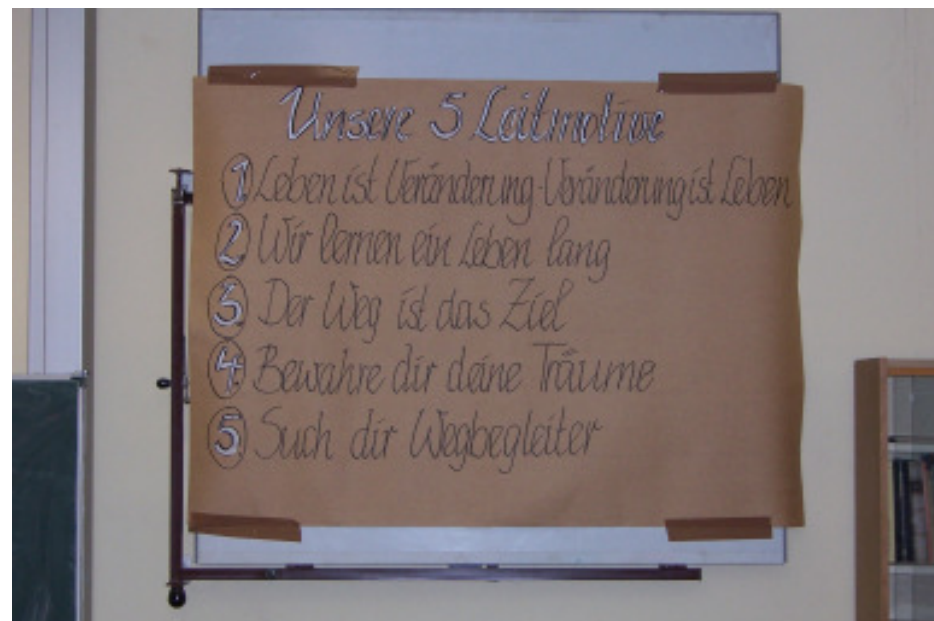 Unsere 5 Leitmotive
1 Leben ist Veränderung-Veränderung ist Leben
2 Wir lernen ein Leben lang
3 Der Weg ist das Ziel
4 Bewahre dir deine Träume
5 Such dir Wegbegleiter